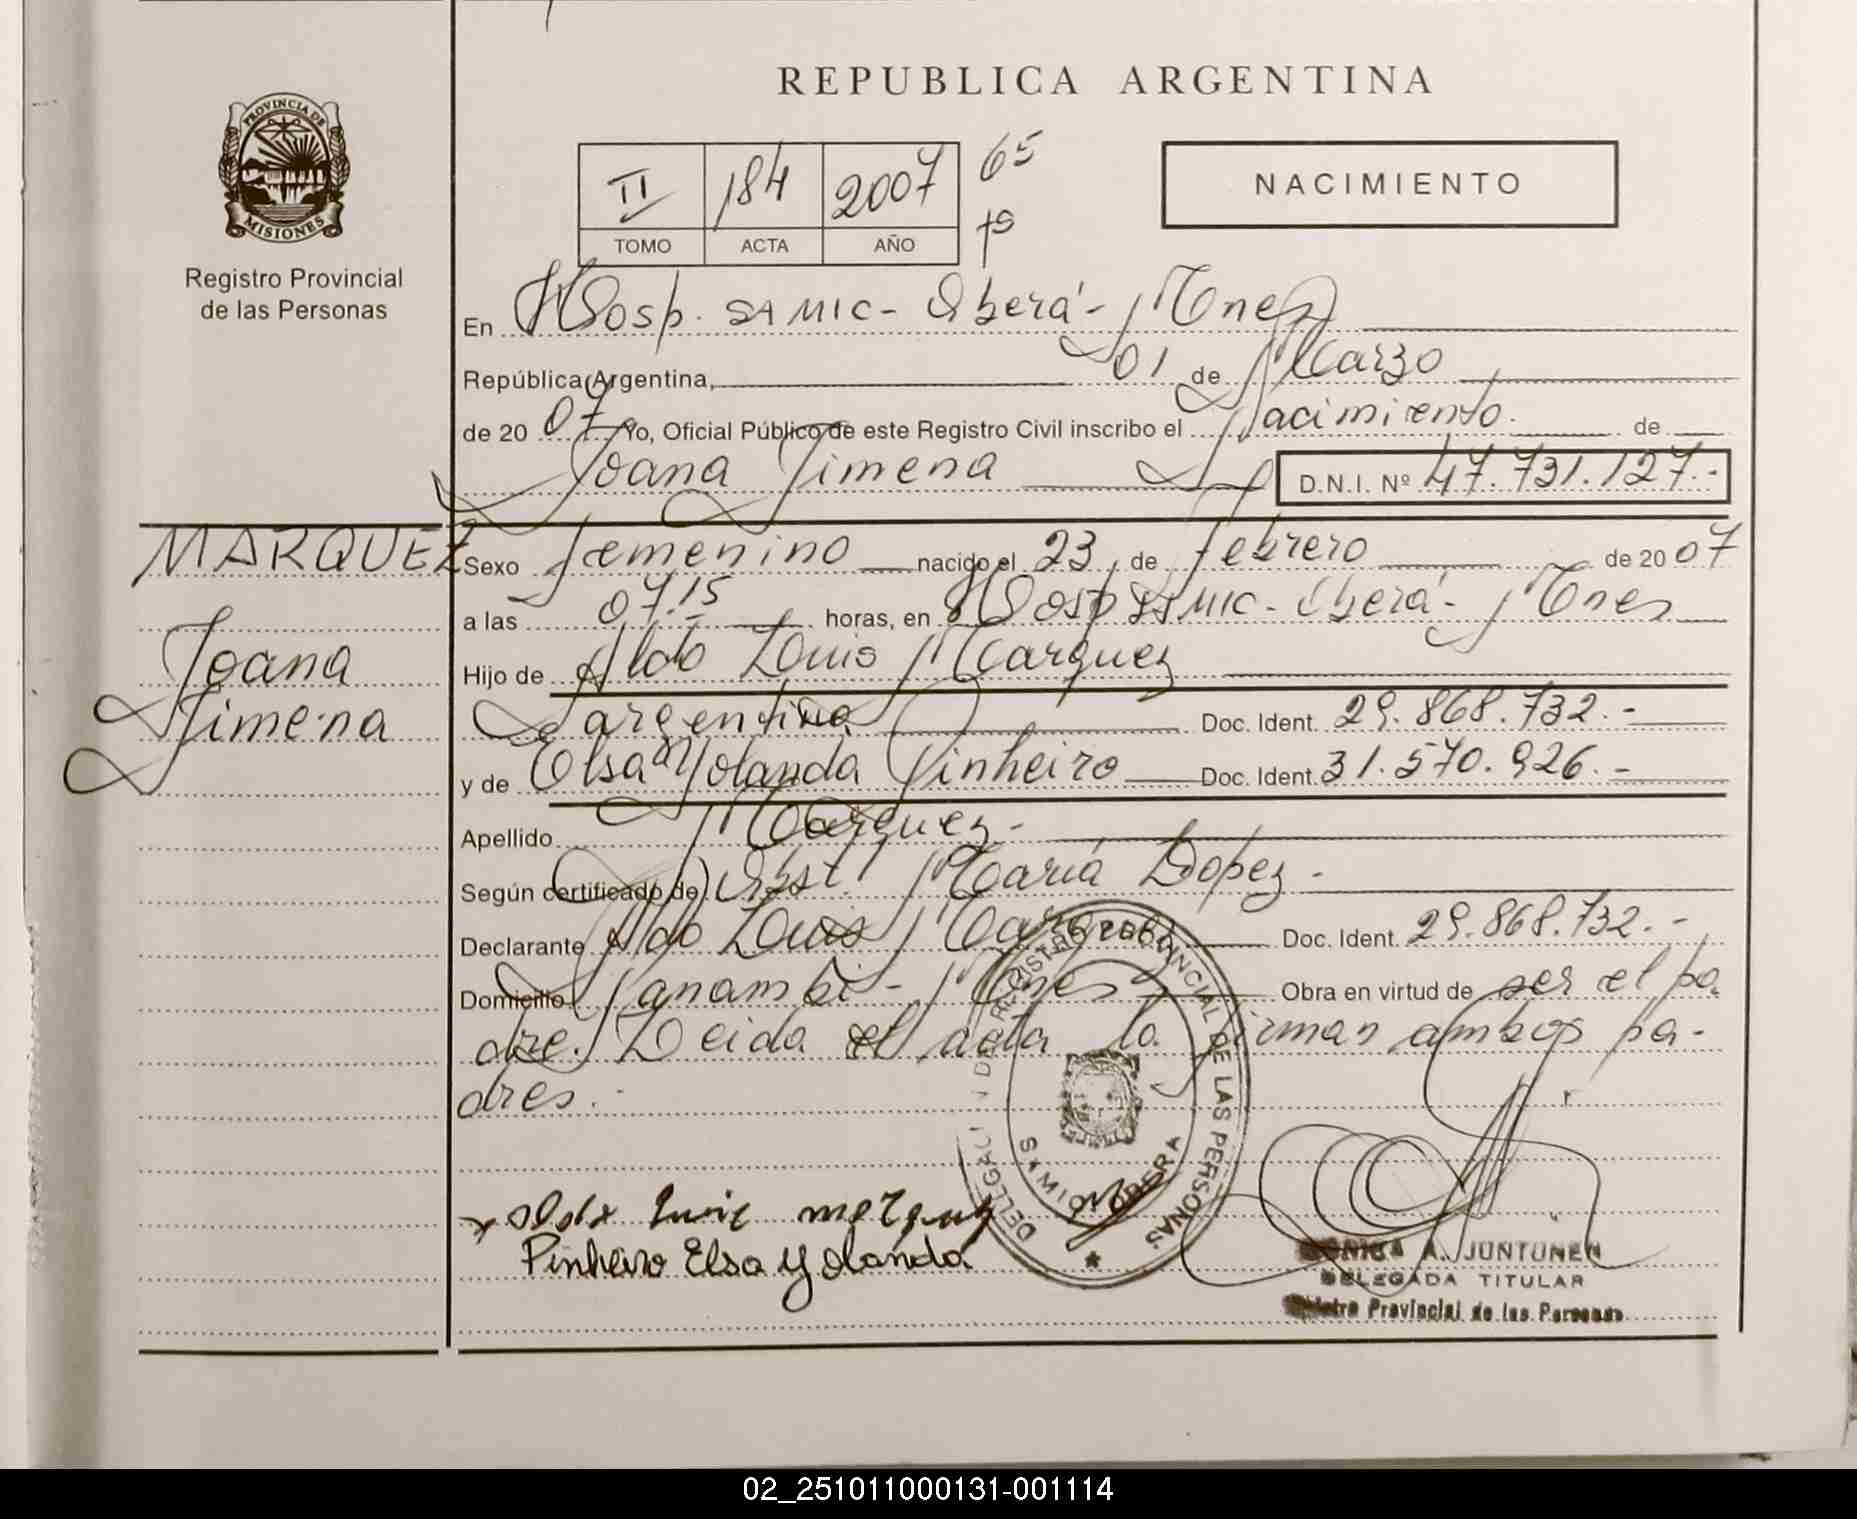 REPUBLICA ARGENTINA
PROVINCIA DE MISIONES
Registro Provincial
de las Personas
II 184 2007 65
TOMO ACTA AÑO
NACIMIENTO
En Hosp. SAMIC - Oberá - Mnes
República Argentina, 01 de Marzo
de 20 07 Yo, Oficial Público de este Registro Civil inscribo el Nacimiento. de
Joana Jimena D.N.I. Nº 47.731.127.-
MARQUEZ
Joana
Jimena
Sexo femenino nacido el 23 de febrero de 20 07
a las 07.15 horas, en Hosp SAMIC - Oberá - Mnes
Hijo de Aldo Louis Marquez
argentino Doc. Ident. 29.868.732.-
y de Elsa Yolanda Pinheiro Doc. Ident. 31.570.926.-
Apellido Marquez -
Según certificado de) Obst. María Lopez -
Declarante Aldo Louis Marquez Doc. Ident. 29.868.732.-
Domicilio Panambí - Mnes Obra en virtud de ser el pa
dre. Leida el acta la firman ambos pa-
dres.-
DELEGACION DE REGISTRO PROVINCIAL DE LAS PERSONAS
OBERA MISIONES
Pinheiro Elsa Yolanda
MONICA A. JUNTUNEN
DELEGADA TITULAR
Registro Provincial de las Personas
02_251011000131-001114